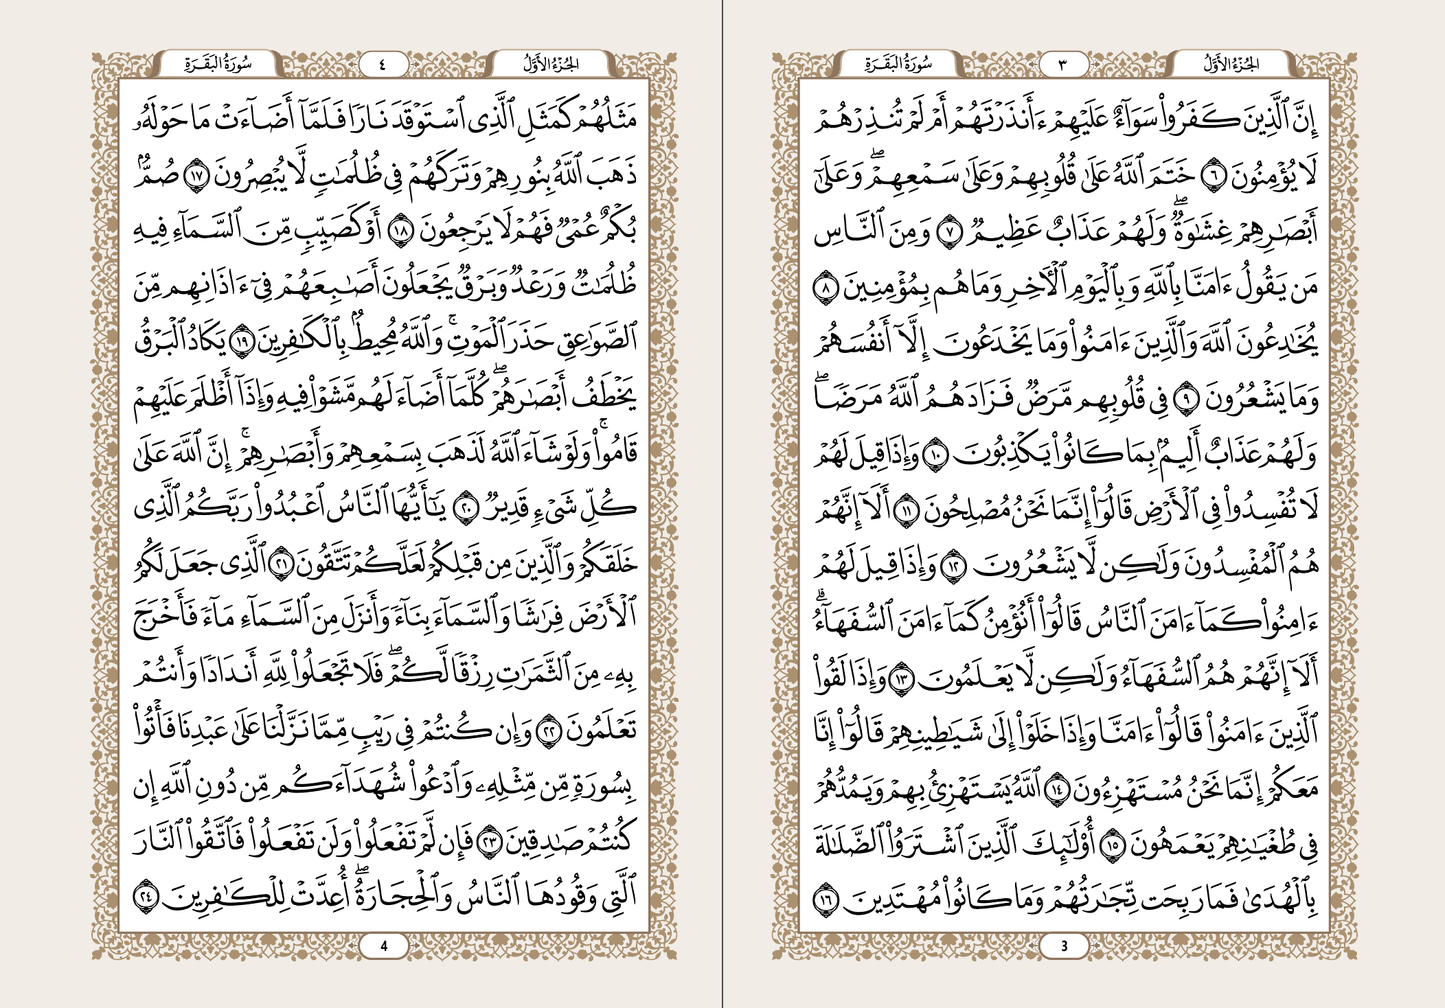 الجُزْءُ الأَوَّلُ
٣
سُورَةُ البَقَرَةِ
إِنَّ ٱلَّذِينَ كَفَرُوا۟ سَوَآءٌ عَلَيْهِمْ ءَأَنذَرْتَهُمْ أَمْ لَمْ تُنذِرْهُمْ
لَا يُؤْمِنُونَ ٦ خَتَمَ ٱللَّهُ عَلَىٰ قُلُوبِهِمْ وَعَلَىٰ سَمْعِهِمْ ۖ وَعَلَىٰٓ
أَبْصَٰرِهِمْ غِشَٰوَةٌ ۖ وَلَهُمْ عَذَابٌ عَظِيمٌ ٧ وَمِنَ ٱلنَّاسِ
مَن يَقُولُ ءَامَنَّا بِٱللَّهِ وَبِٱلْيَوْمِ ٱلْءَاخِرِ وَمَا هُم بِمُؤْمِنِينَ ٨
يُخَٰدِعُونَ ٱللَّهَ وَٱلَّذِينَ ءَامَنُوا۟ وَمَا يَخْدَعُونَ إِلَّآ أَنفُسَهُمْ
وَمَا يَشْعُرُونَ ٩ فِى قُلُوبِهِم مَّرَضٌ فَزَادَهُمُ ٱللَّهُ مَرَضًا ۖ
وَلَهُمْ عَذَابٌ أَلِيمٌۢ بِمَا كَانُوا۟ يَكْذِبُونَ ١٠ وَإِذَا قِيلَ لَهُمْ
لَا تُفْسِدُوا۟ فِى ٱلْأَرْضِ قَالُوٓا۟ إِنَّمَا نَحْنُ مُصْلِحُونَ ١١ أَلَآ إِنَّهُمْ
هُمُ ٱلْمُفْسِدُونَ وَلَٰكِن لَّا يَشْعُرُونَ ١٢ وَإِذَا قِيلَ لَهُمْ
ءَامِنُوا۟ كَمَآ ءَامَنَ ٱلنَّاسُ قَالُوٓا۟ أَنُؤْمِنُ كَمَآ ءَامَنَ ٱلسُّفَهَآءُ ۗ
أَلَآ إِنَّهُمْ هُمُ ٱلسُّفَهَآءُ وَلَٰكِن لَّا يَعْلَمُونَ ١٣ وَإِذَا لَقُوا۟
ٱلَّذِينَ ءَامَنُوا۟ قَالُوٓا۟ ءَامَنَّا وَإِذَا خَلَوْا۟ إِلَىٰ شَيَٰطِينِهِمْ قَالُوٓا۟ إِنَّا
مَعَكُمْ إِنَّمَا نَحْنُ مُسْتَهْزِءُونَ ١٤ ٱللَّهُ يَسْتَهْزِئُ بِهِمْ وَيَمُدُّهُمْ
فِى طُغْيَٰنِهِمْ يَعْمَهُونَ ١٥ أُو۟لَٰٓئِكَ ٱلَّذِينَ ٱشْتَرَوُا۟ ٱلضَّلَٰلَةَ
بِٱلْهُدَىٰ فَمَا رَبِحَت تِّجَٰرَتُهُمْ وَمَا كَانُوا۟ مُهْتَدِينَ ١٦
3
الجُزْءُ الأَوَّلُ
٤
سُورَةُ البَقَرَةِ
مَثَلُهُمْ كَمَثَلِ ٱلَّذِى ٱسْتَوْقَدَ نَارًا فَلَمَّآ أَضَآءَتْ مَا حَوْلَهُۥ
ذَهَبَ ٱللَّهُ بِنُورِهِمْ وَتَرَكَهُمْ فِى ظُلُمَٰتٍ لَّا يُبْصِرُونَ ١٧ صُمٌّۢ
بُكْمٌ عُمْىٌ فَهُمْ لَا يَرْجِعُونَ ١٨ أَوْ كَصَيِّبٍ مِّنَ ٱلسَّمَآءِ فِيهِ
ظُلُمَٰتٌ وَرَعْدٌ وَبَرْقٌ يَجْعَلُونَ أَصَٰبِعَهُمْ فِىٓ ءَاذَانِهِم مِّنَ
ٱلصَّوَٰعِقِ حَذَرَ ٱلْمَوْتِ ۚ وَٱللَّهُ مُحِيطٌۢ بِٱلْكَٰفِرِينَ ١٩ يَكَادُ ٱلْبَرْقُ
يَخْطَفُ أَبْصَٰرَهُمْ ۖ كُلَّمَآ أَضَآءَ لَهُم مَّشَوْا۟ فِيهِ وَإِذَآ أَظْلَمَ عَلَيْهِمْ
قَامُوا۟ ۚ وَلَوْ شَآءَ ٱللَّهُ لَذَهَبَ بِسَمْعِهِمْ وَأَبْصَٰرِهِمْ ۚ إِنَّ ٱللَّهَ عَلَىٰ
كُلِّ شَىْءٍ قَدِيرٌ ٢٠ يَٰٓأَيُّهَا ٱلنَّاسُ ٱعْبُدُوا۟ رَبَّكُمُ ٱلَّذِى
خَلَقَكُمْ وَٱلَّذِينَ مِن قَبْلِكُمْ لَعَلَّكُمْ تَتَّقُونَ ٢١ ٱلَّذِى جَعَلَ لَكُمُ
ٱلْأَرْضَ فِرَٰشًا وَٱلسَّمَآءَ بِنَآءً وَأَنزَلَ مِنَ ٱلسَّمَآءِ مَآءً فَأَخْرَجَ
بِهِۦ مِنَ ٱلثَّمَرَٰتِ رِزْقًا لَّكُمْ ۖ فَلَا تَجْعَلُوا۟ لِلَّهِ أَندَادًا وَأَنتُمْ
تَعْلَمُونَ ٢٢ وَإِن كُنتُمْ فِى رَيْبٍ مِّمَّا نَزَّلْنَا عَلَىٰ عَبْدِنَا فَأْتُوا۟
بِسُورَةٍ مِّن مِّثْلِهِۦ وَٱدْعُوا۟ شُهَدَآءَكُم مِّن دُونِ ٱللَّهِ إِن
كُنتُمْ صَٰدِقِينَ ٢٣ فَإِن لَّمْ تَفْعَلُوا۟ وَلَن تَفْعَلُوا۟ فَٱتَّقُوا۟ ٱلنَّارَ
ٱلَّتِى وَقُودُهَا ٱلنَّاسُ وَٱلْحِجَارَةُ ۖ أُعِدَّتْ لِلْكَٰفِرِينَ ٢٤
4